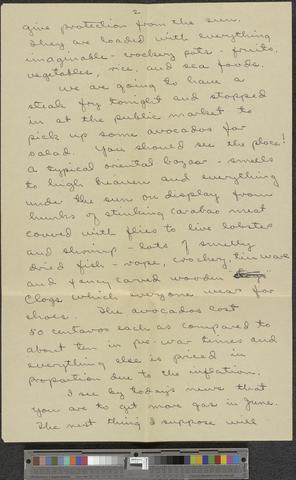 2
give protection from the sun.
They are loaded with everything
imaginable - crockery pots - fruits,
vegetables, rice, and sea foods.
We are going to have a
steak fry tonight and stopped
in at the public market to
pick up some avocados for
salad. You should see the place!
A typical oriental bazaar - smells
to high heaven and everything
under the sun on display from
hunks of stinking carabao meat
covered with flies to live lobster
and shrimp - lots of smelly
dried fish - rope, crockery, tin ware
and fancy carved wooden
clogs which everyone wears for
shoes. The avocados cost
50 centavos each as compared to
about ten in pre-war times and
everything else is priced in
proportion due to the inflation.
I see by today's news that
you are to get more gas in June.
The next thing I suppose will